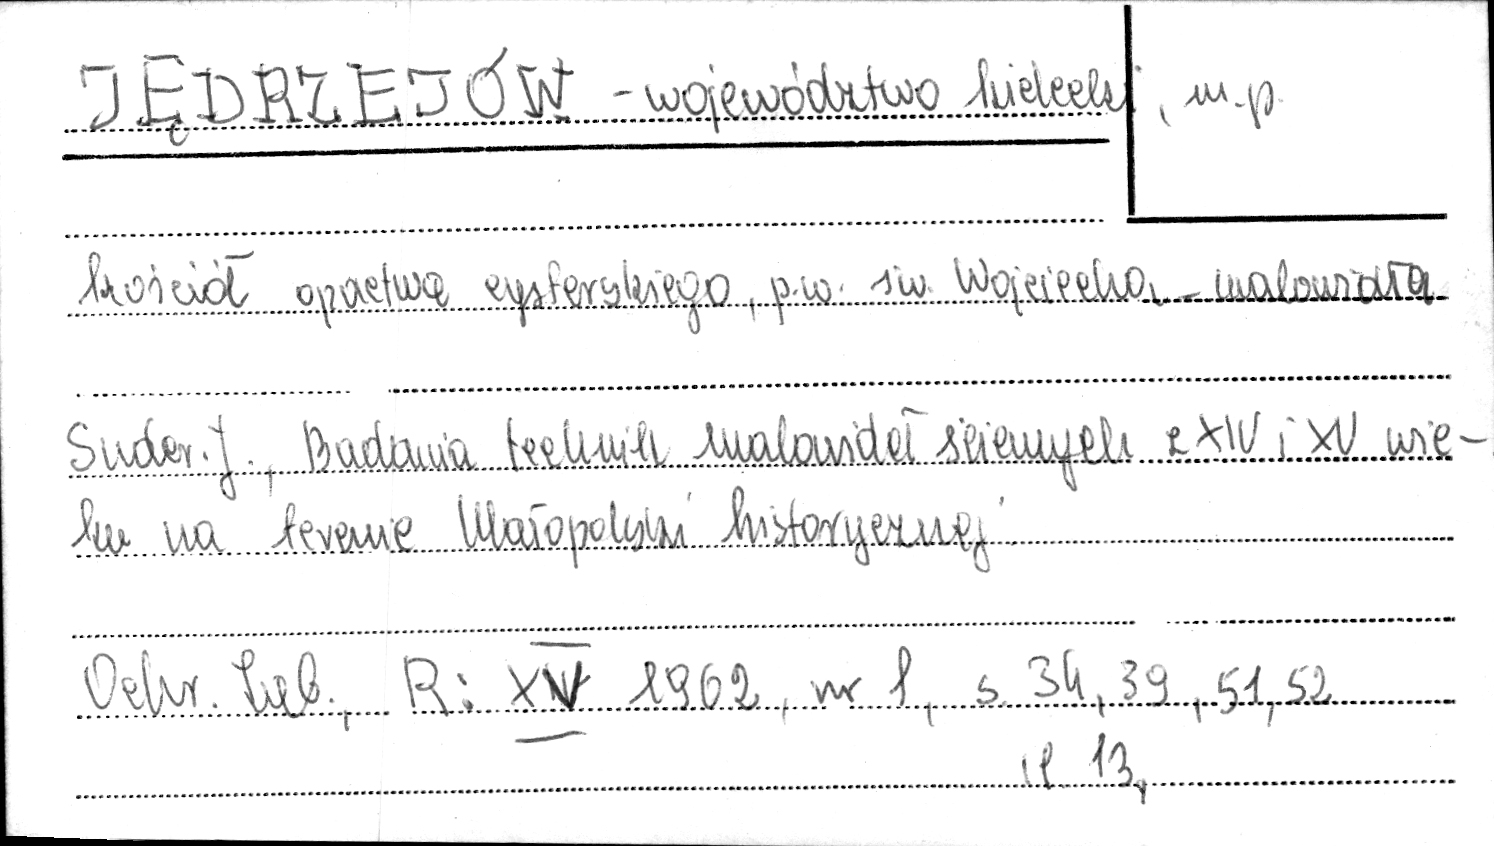 JĘDRZEJÓW - województwo kielecki, m.p.
kościół opactwa cysterskiego, p.w. św. Wojciecha, - malowidła
Suder. J., Badania technik malowideł ściennych z XIV i XV wie-
ku na terenie Małopolski historycznej
Ochr. Zab., R: XV 1962, nr 1, s. 34, 39, 51, 52
il. 13,